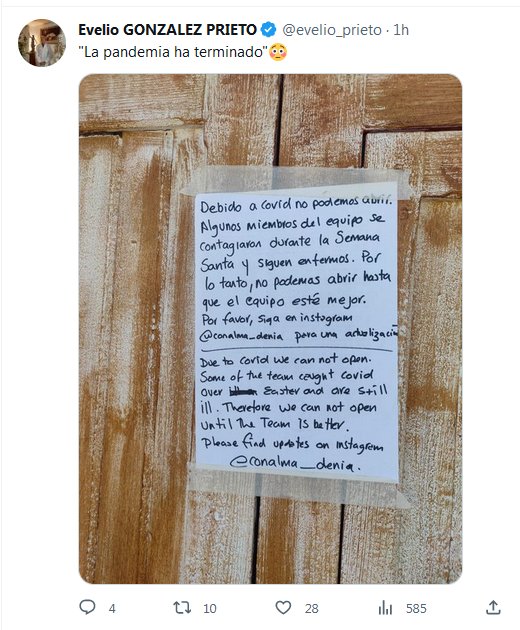 Evelio GONZALEZ PRIETO @evelio_prieto · 1h
"La pandemia ha terminado"😳
Debido a covid no podemos abrir.
Algunos miembros del equipo se
contagiaron durante la Semana
Santa y siguen enfermos. Por
lo tanto, no podemos abrir hasta
que el equipo esté mejor.
Por favor, siga en instagram
@conalma_denia para una actualización
Due to covid we can not open.
Some of the team caught covid
over Easter and are still
ill. Therefore we can not open
until the Team is better.
Please find updates on Instagram
@conalma_denia.
4 10 28 585